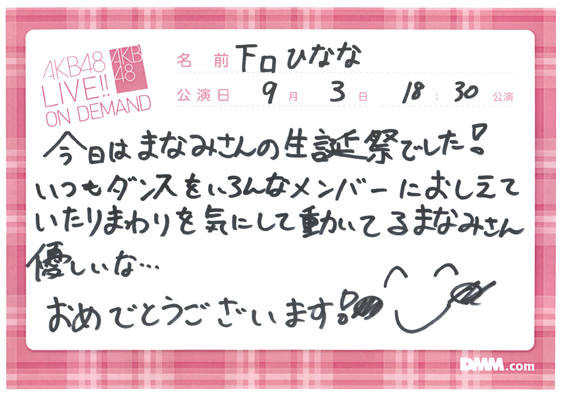 AKB48
LIVE!!
ON DEMAND
AKB
48
名前 下口ひなな
公演日 9月3日 18:30公演
今日はまなみさんの生誕祭でした!
いつもダンスをいろんなメンバーにおしえて
いたりまわりを気にして動いてるまなみさん
優しいな…
おめでとうございます!
DMM.com